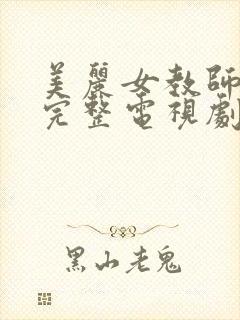 美麗女教師
完整電視劇
黑山老鬼